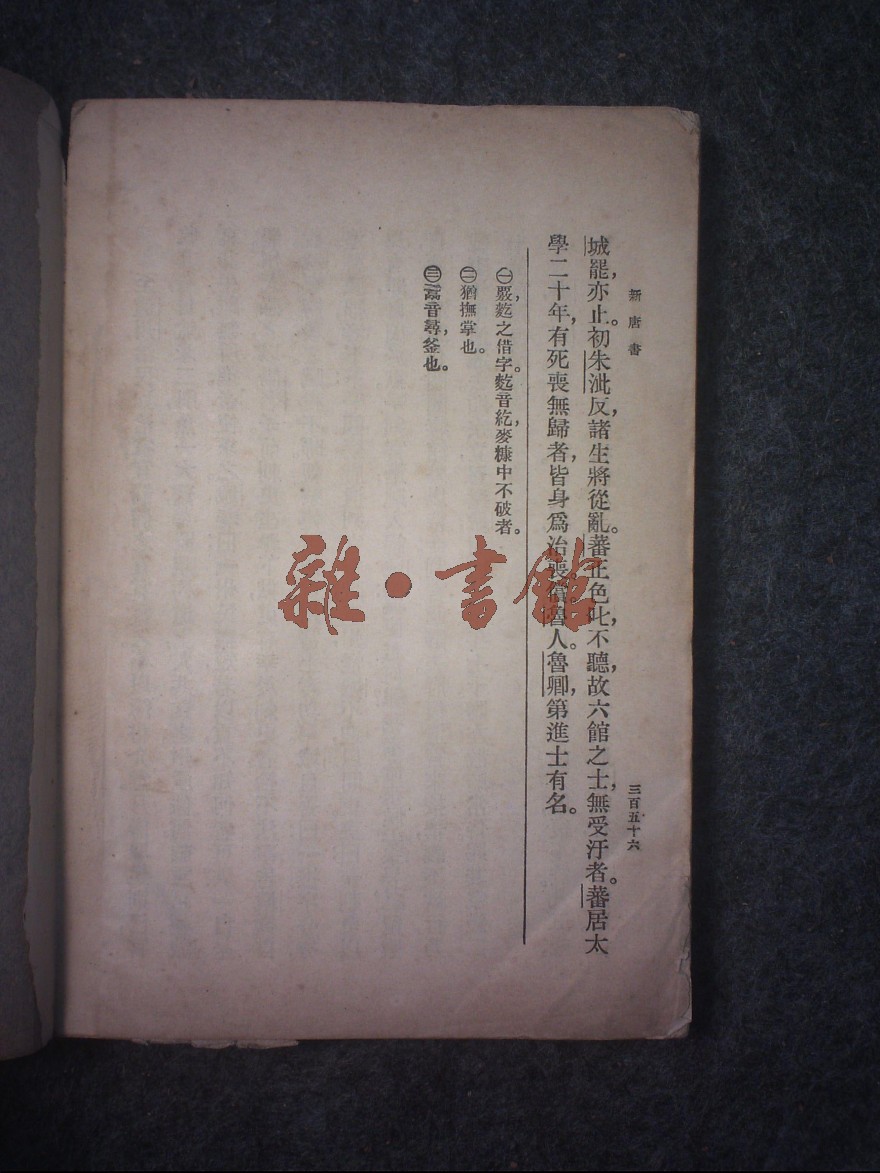 新唐書
三百五十六
城罷，亦止。初朱泚反，諸生將從亂。蕃正色叱，不聽，故六館之士，無受汙者。蕃居太
學二十年，有死喪無歸者，皆身爲治喪。償魯人。魯卿，第進士有名。
㊀覈，麧之借字。麧音紇，麥糠中不破者。
㊁猶撫掌也。
㊂鬵音尋，釜也。
雜·書館